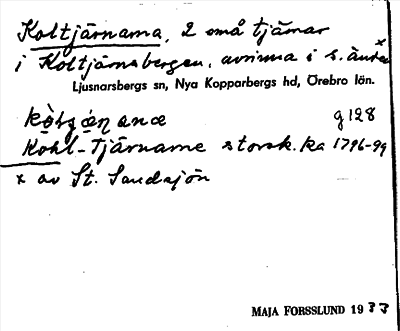 Koltjärnama, 2 små tjärnar
i Koltjärnsbergen, avrinna i s. ändan x
Ljusnarsbergs sn, Nya Kopparbergs hd, Örebro län.
g 128
Kohl-Tjärname storsk. ka 1796-99
x av St. Sandsjön
MAJA FORSSLUND 1933